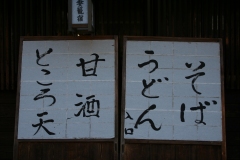 そば
うどん
甘酒
ところ天